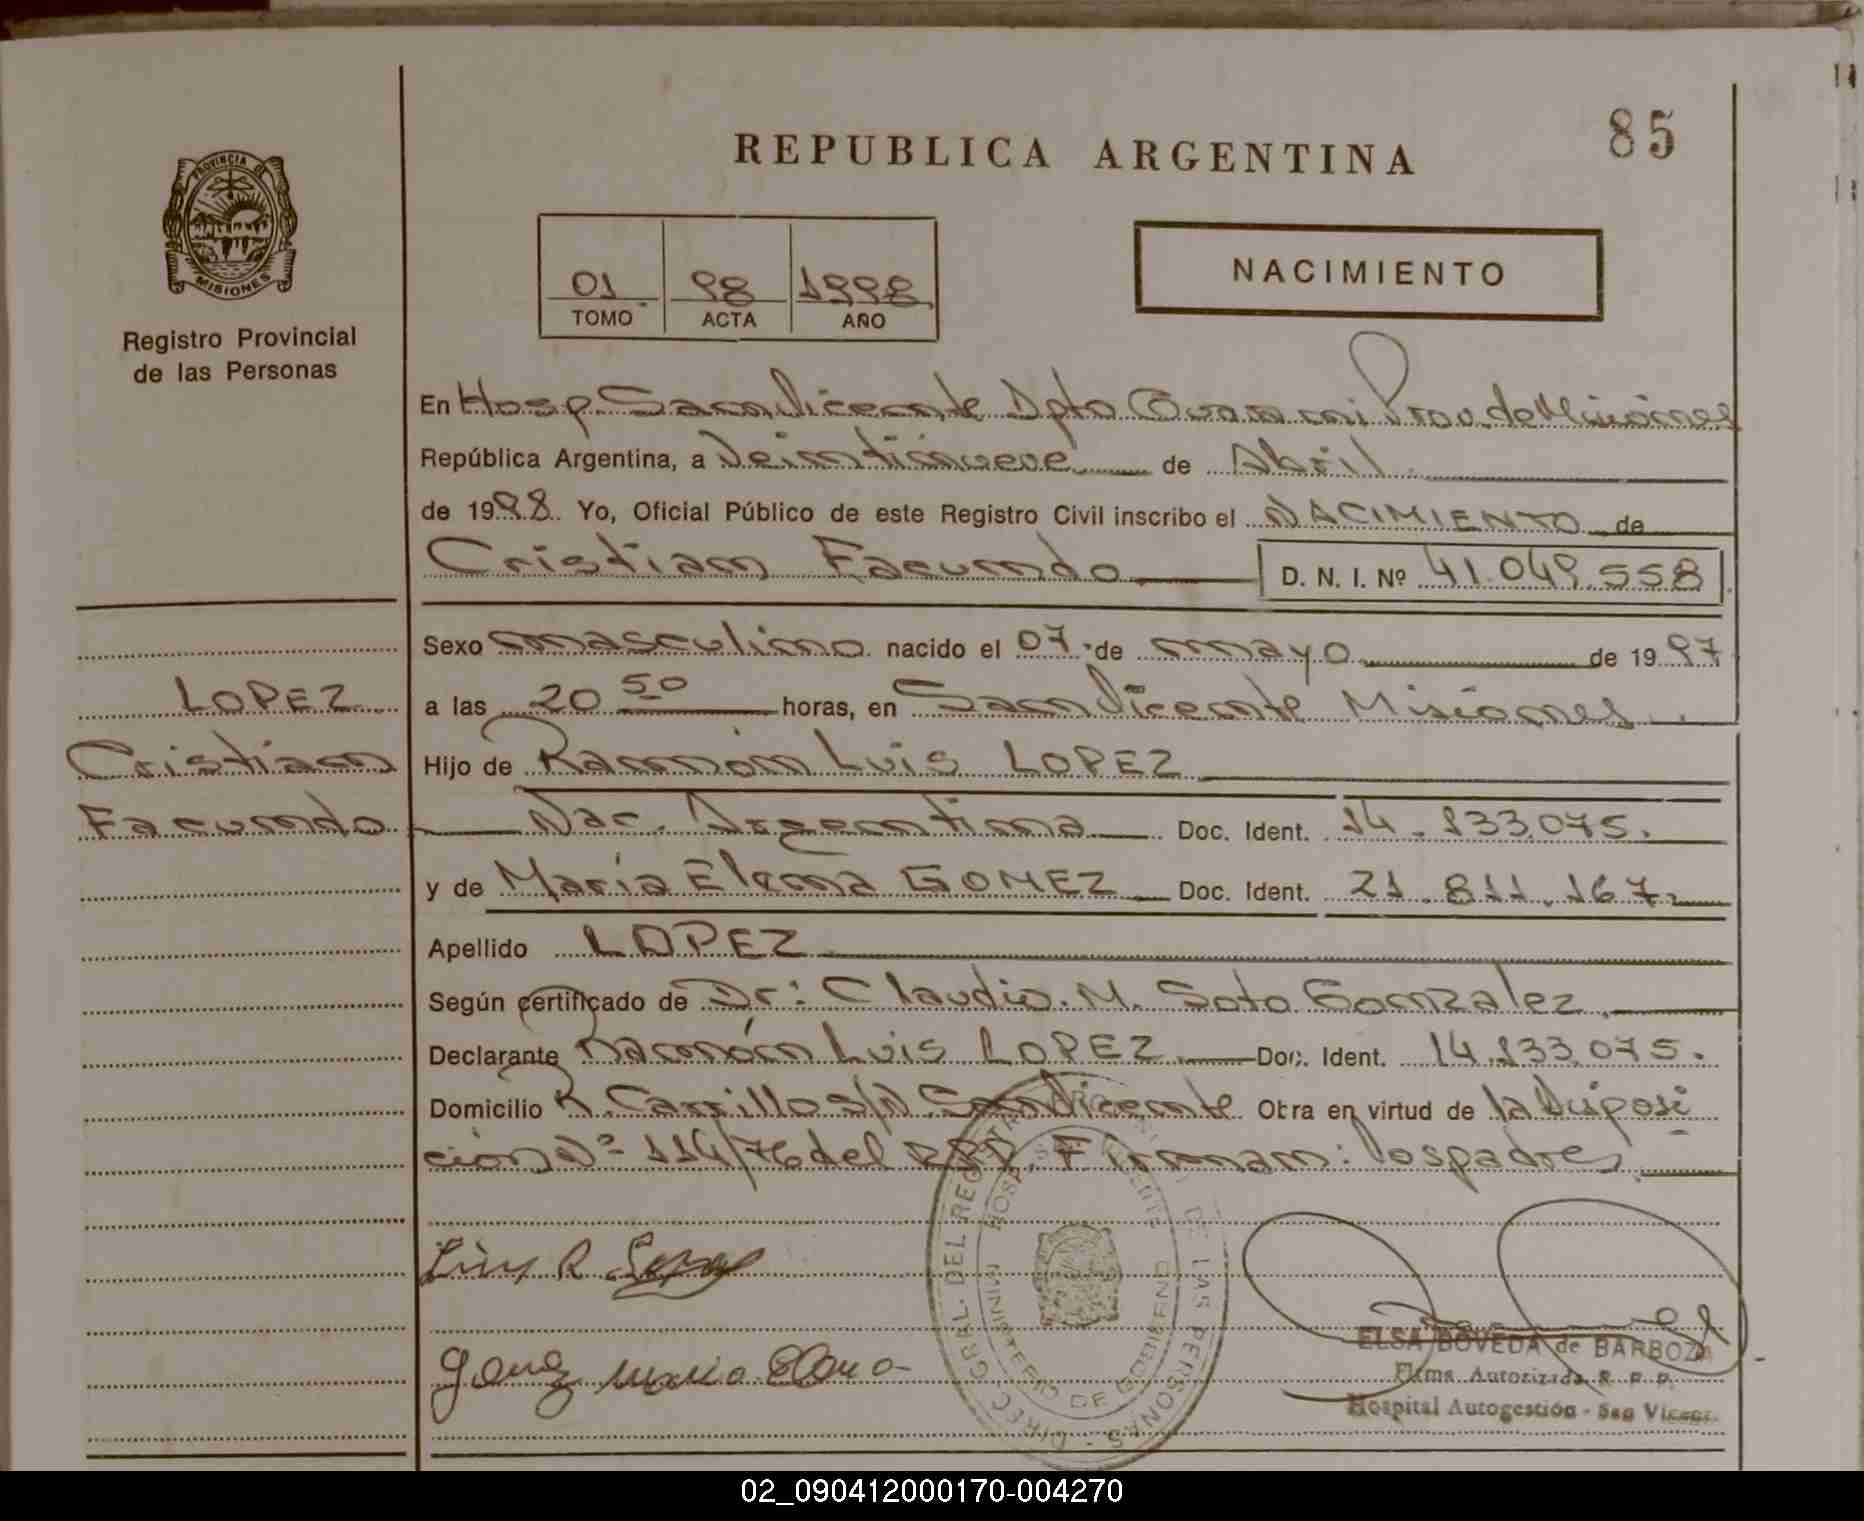 85
REPUBLICA ARGENTINA
PROVINCIA DE
MISIONES
Registro Provincial
de las Personas
01 98 1998
TOMO ACTA AÑO
NACIMIENTO
En Hosp. San Vicente Dpto Guarani Prov. de Misiones
República Argentina, a Veintinueve de Abril
de 1998. Yo, Oficial Público de este Registro Civil inscribo el NACIMIENTO de
Cristian Facundo D. N. I. Nº 41.049.558
Sexo masculino nacido el 07 de mayo de 1997
a las 20 50 horas, en San Vicente Misiones
Hijo de Ramón Luis LOPEZ
Nac. Argentina Doc. Ident. 14.133.075.
y de María Elena GOMEZ Doc. Ident. 21.811.167.
Apellido LOPEZ
Según certificado de Dr: Claudio. M. Soto Gonzalez
Declarante Ramón Luis LOPEZ Doc. Ident. 14.133.075.
Domicilio R. Carrillo s/N San Vicente Obra en virtud de la Disposi
ción Nº 114/76 del RPP. Firman: los padres
LOPEZ
Cristian
Facundo
Luis R Lopez
Gomez Maria Elena
DIREC. GRAL. DEL REGISTRO DE LAS PERSONAS
HOSP. SAN VICENTE
MINISTERIO DE GOBIERNO
ELSA BOVEDA de BARBOZA
Firma Autorizada R. P. P.
Hospital Autogestión - San Vicente
02_090412000170-004270